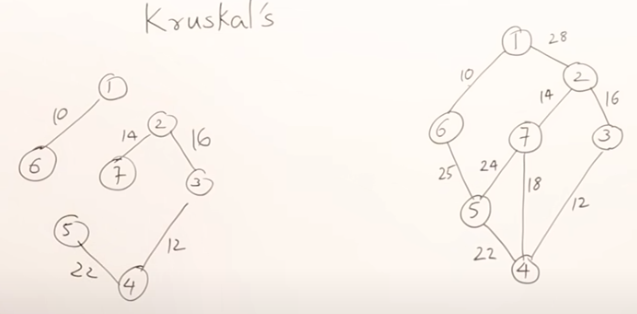 Kruskal's
1
10
6
2
14
16
7
3
5
12
22
4
1
28
2
10
14
16
6
7
3
25
24
18
5
12
22
4